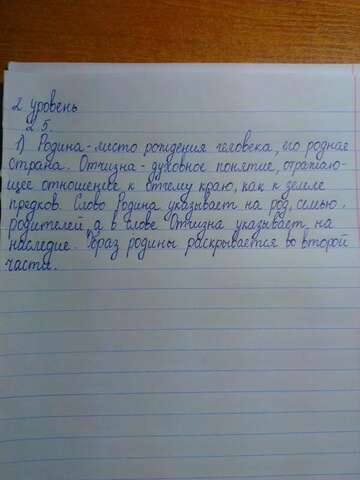 2 уровень
25.
1) Родина - место рождения человека, его родная
страна. Отчизна - духовное понятие, отражаю-
щее отношение к отчему краю, как к земле
предков. Слово Родина указывает на род, семью,
родителей, а в слове Отчизна указывает на
наследие. Образ родины раскрывается во второй
части.